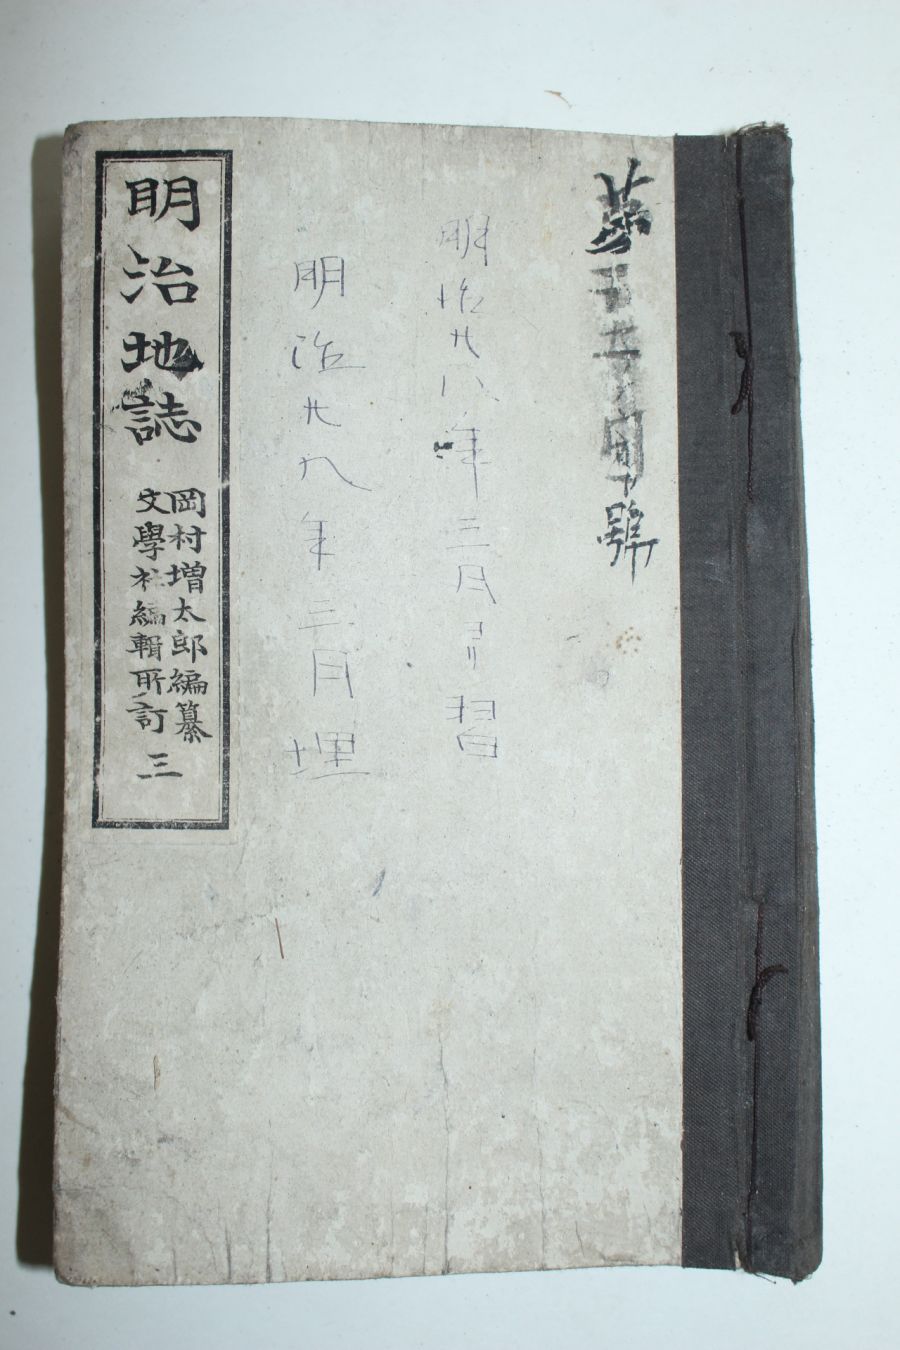 第
號
明治廿八年三月ヨリ習
明治廿九年三月埋
明治地誌
岡村増太郎編纂
文學社編輯所訂 三